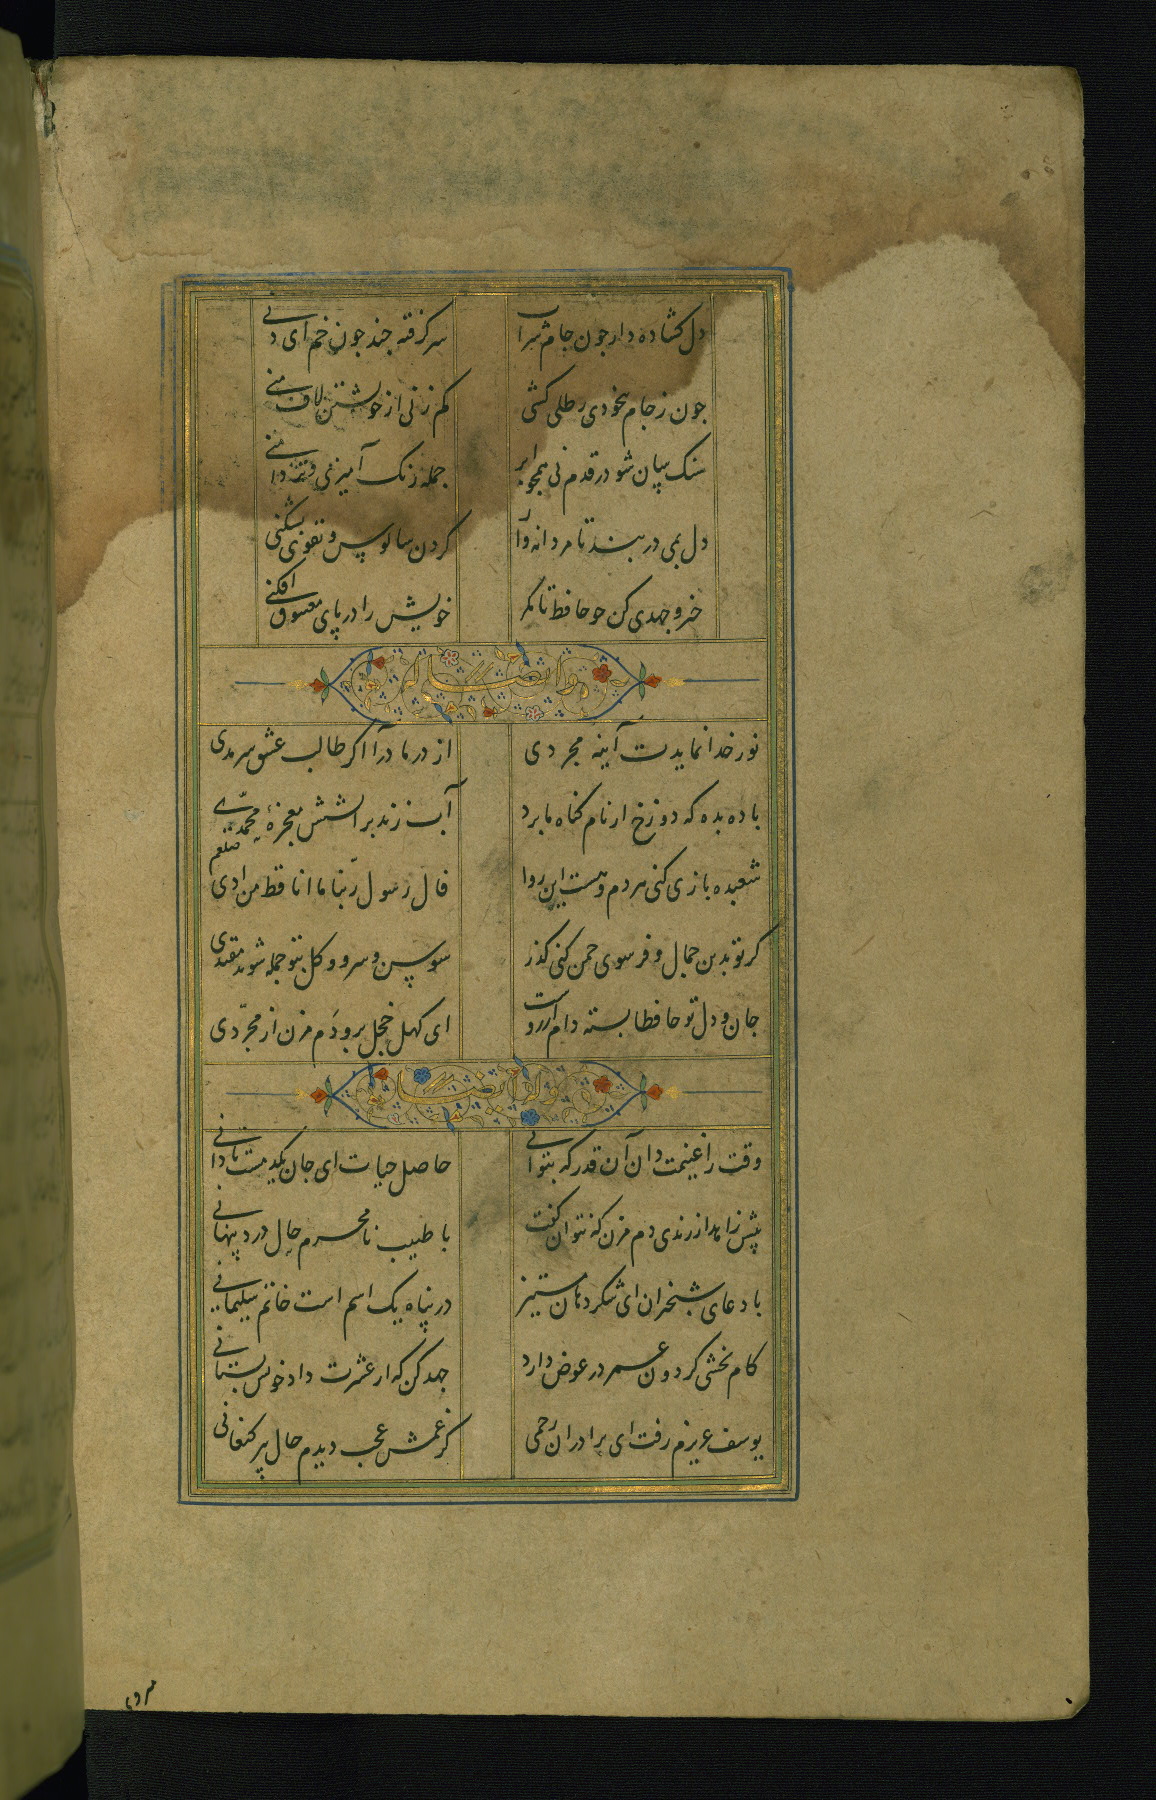 دل کشاده دار جون جام شراب سر کرفته جند جون خم ای دنی
جون ز جام بیخودی رطلی کشی کم زنی از خویشتن لاف منی
سنک سان شو در قدم نی همجو ابر جمله رنک آمیزی و تر دامنی
دل بمی در بند تا مردانه وار کردن سالوس و تقوی بشکنی
خیز و جهدی کن جو حافظ تا مکر خویش را در پای معسوق افکنی
وله ایضا
نور خدا نمایدت آینه مجردی از در ما درآ اکر طالب عشق سرمدی
باده بده که دوزخ ار نام کناه ما برد آب زند بر آتشش معجزهٔ محمدی
شعبده بازی کنی هر دم و هست این روا قال رسول ربنا ما انا قط من ددی
صلعم
کر تو بدین جمال و فر سوی جمن کنی کذر سوسن و سرو و کل بتو جمله شوند مقتدی
جان و دل تو حافظا بسته دام آرزوست ای کهل خجل برو دم مزن از مجردی
وله ایضا
وقت را غنیمت دان آن قدر که بتوانی حاصل حیات ای جان یکدمست تا دانی
پیش زاهد از رندی دم مزن که نتوان کفت با طبیب نامحرم حال درد پنهانی
با دعای شبخیزان ای شکردهان مستیز در پناه یک اسم است خاتم سلیمانی
کام بخشی کردون عمر در عوض دارد جهد کن که از عشرت داد خویش بستانی
یوسف عزیزم رفت ای برادران رحمی کز غمش عجب دیدم حال پیر کنعانی